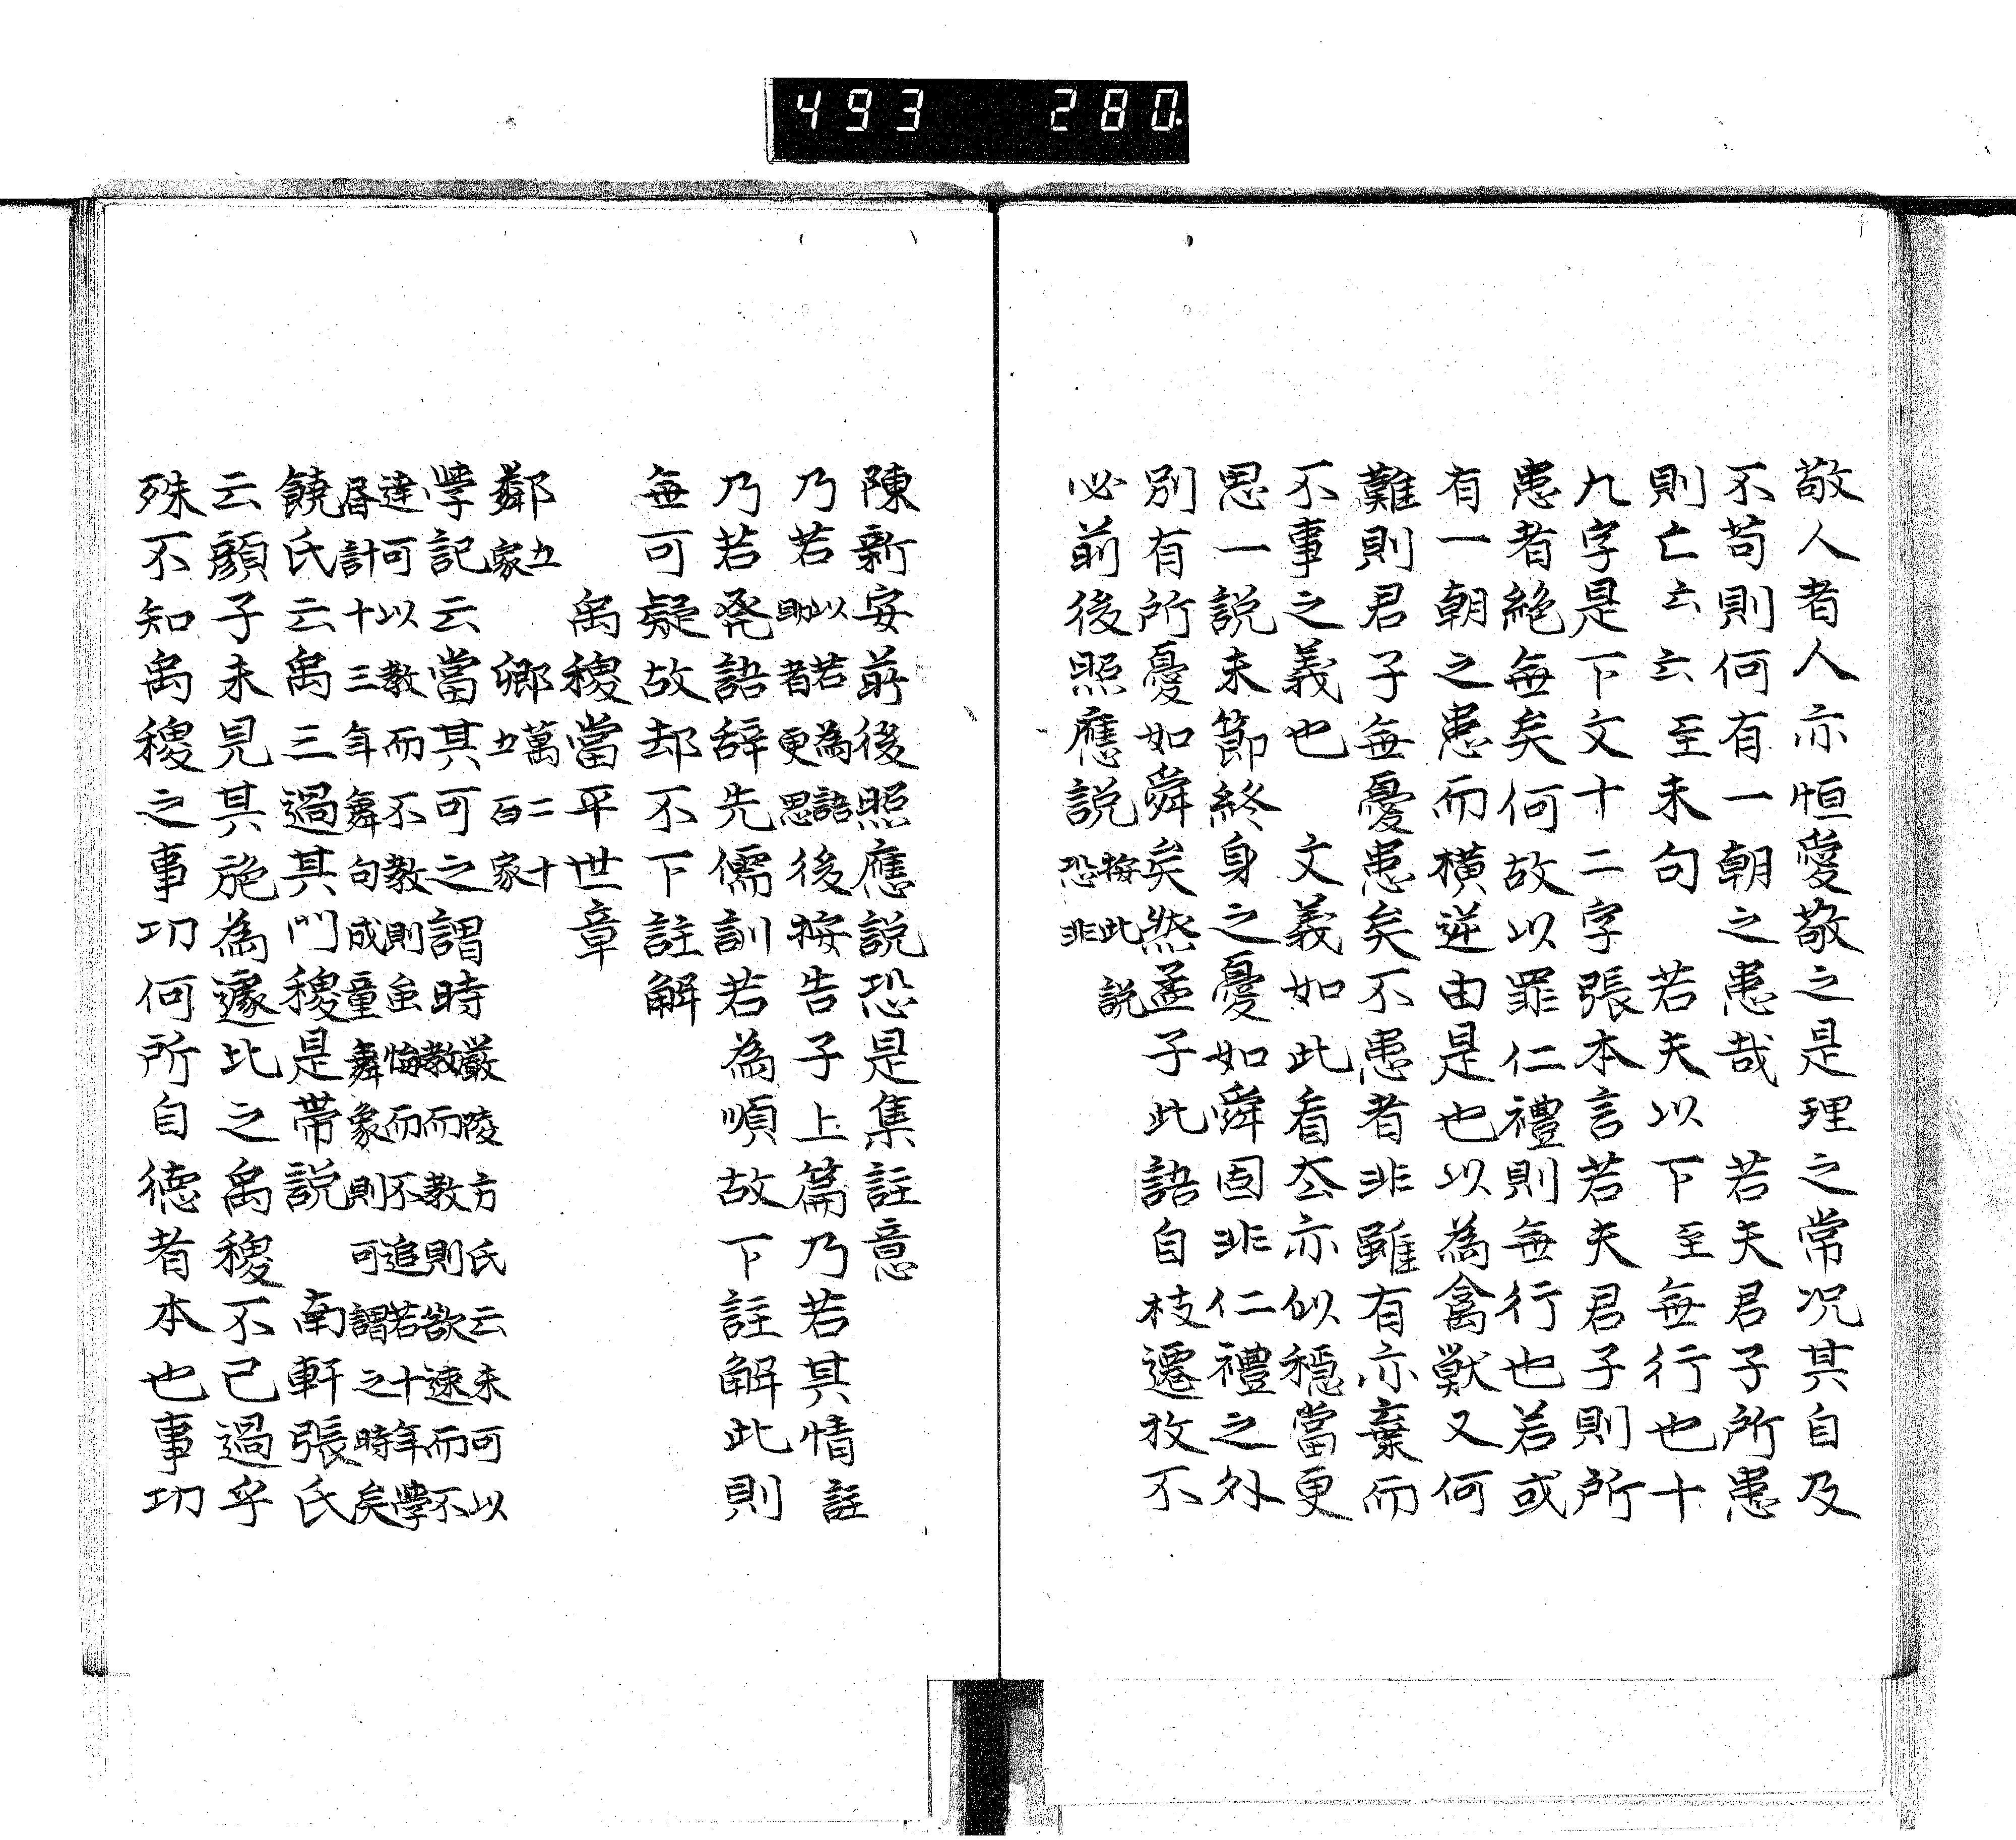 493 280.
敬人者人亦恒愛敬之是理之常况其自及
不苟則何有一朝之患哉 若夫君子所患
則亡云云至末句 若夫以下至無行也十
九字是下文十二字張本言若夫君子則所
患者絶無矣何故以罪仁禮則無行也若或
有一朝之患而横逆由是也以為禽獸又何
難則君子無憂患矣不患者非雖有亦棄而
不事之義也 文義如此看厺亦似穩當更
思一説未節終身之憂如舜固非仁禮之外
別有所憂如舜矣然孟子此語自枝遷攷不
必前後照應説按此説恐非
陳新安前後照應説恐是集註意
乃若以若為語助者更思後按告子上篇乃若其情註
乃若発語辞先儒訓若為順故下註解此則
無可疑故却不下註解
禹稷當平世章
鄰五家 鄉萬二千五百家
學記云當其可之謂時嚴陵方氏云未可以教而教則欲速而不
達可以教而不教則虽悔而不追若十年學書計十三年舞勺成童舞象則可謂之時矣
饒氏云禹三過其門稷是帯説 南軒張氏
云顔子未見其施為遽比之禹稷不已過乎
殊不知禹稷之事功何所自徳者本也事功